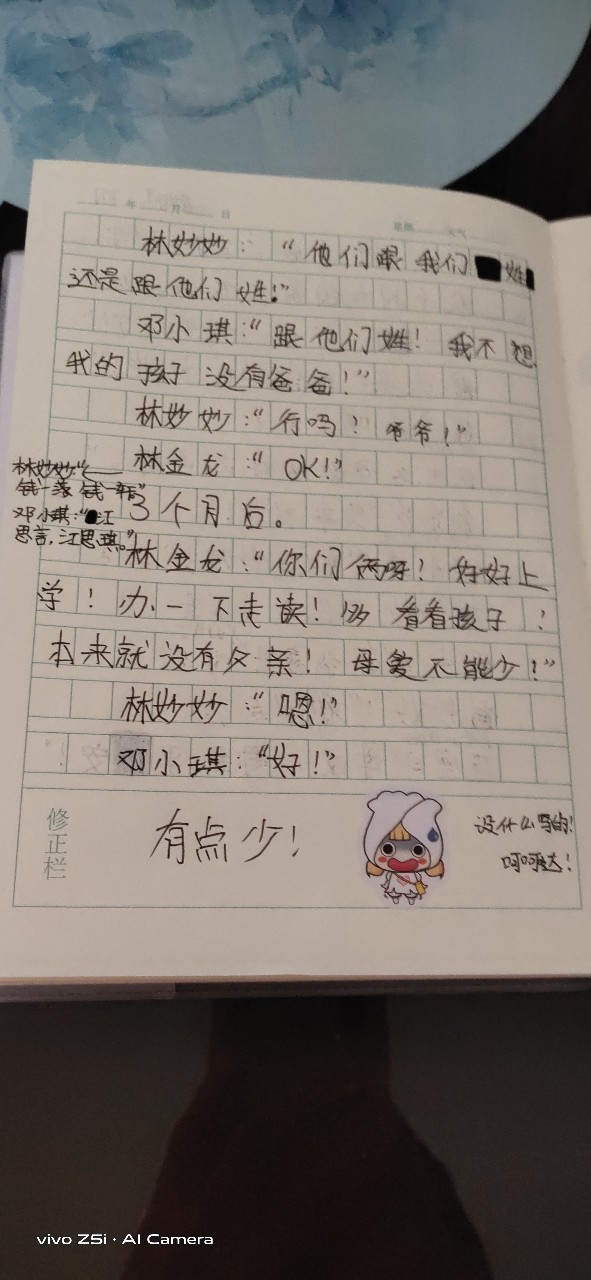 年 月 日
星期 天气
林妙妙："他们跟我们姓
还是跟他们姓！"
邓小琪："跟他们姓！我不想
我的孩子没有爸爸！"
林妙妙："行吗！爷爷！"
林金龙："OK！"
林妙妙："
钱一 钱一
邓小琪："江
思言，江思琪。"
3个月后。
林金龙："你们俩呀！好好上
学！办一下走读！多看看孩子！
本来就没有父亲！母爱不能少！"
林妙妙："嗯！"
邓小琪："好！"
修正栏
有点少！
没什么写的！
呵呵哒！
vivo Z5i · AI Camera